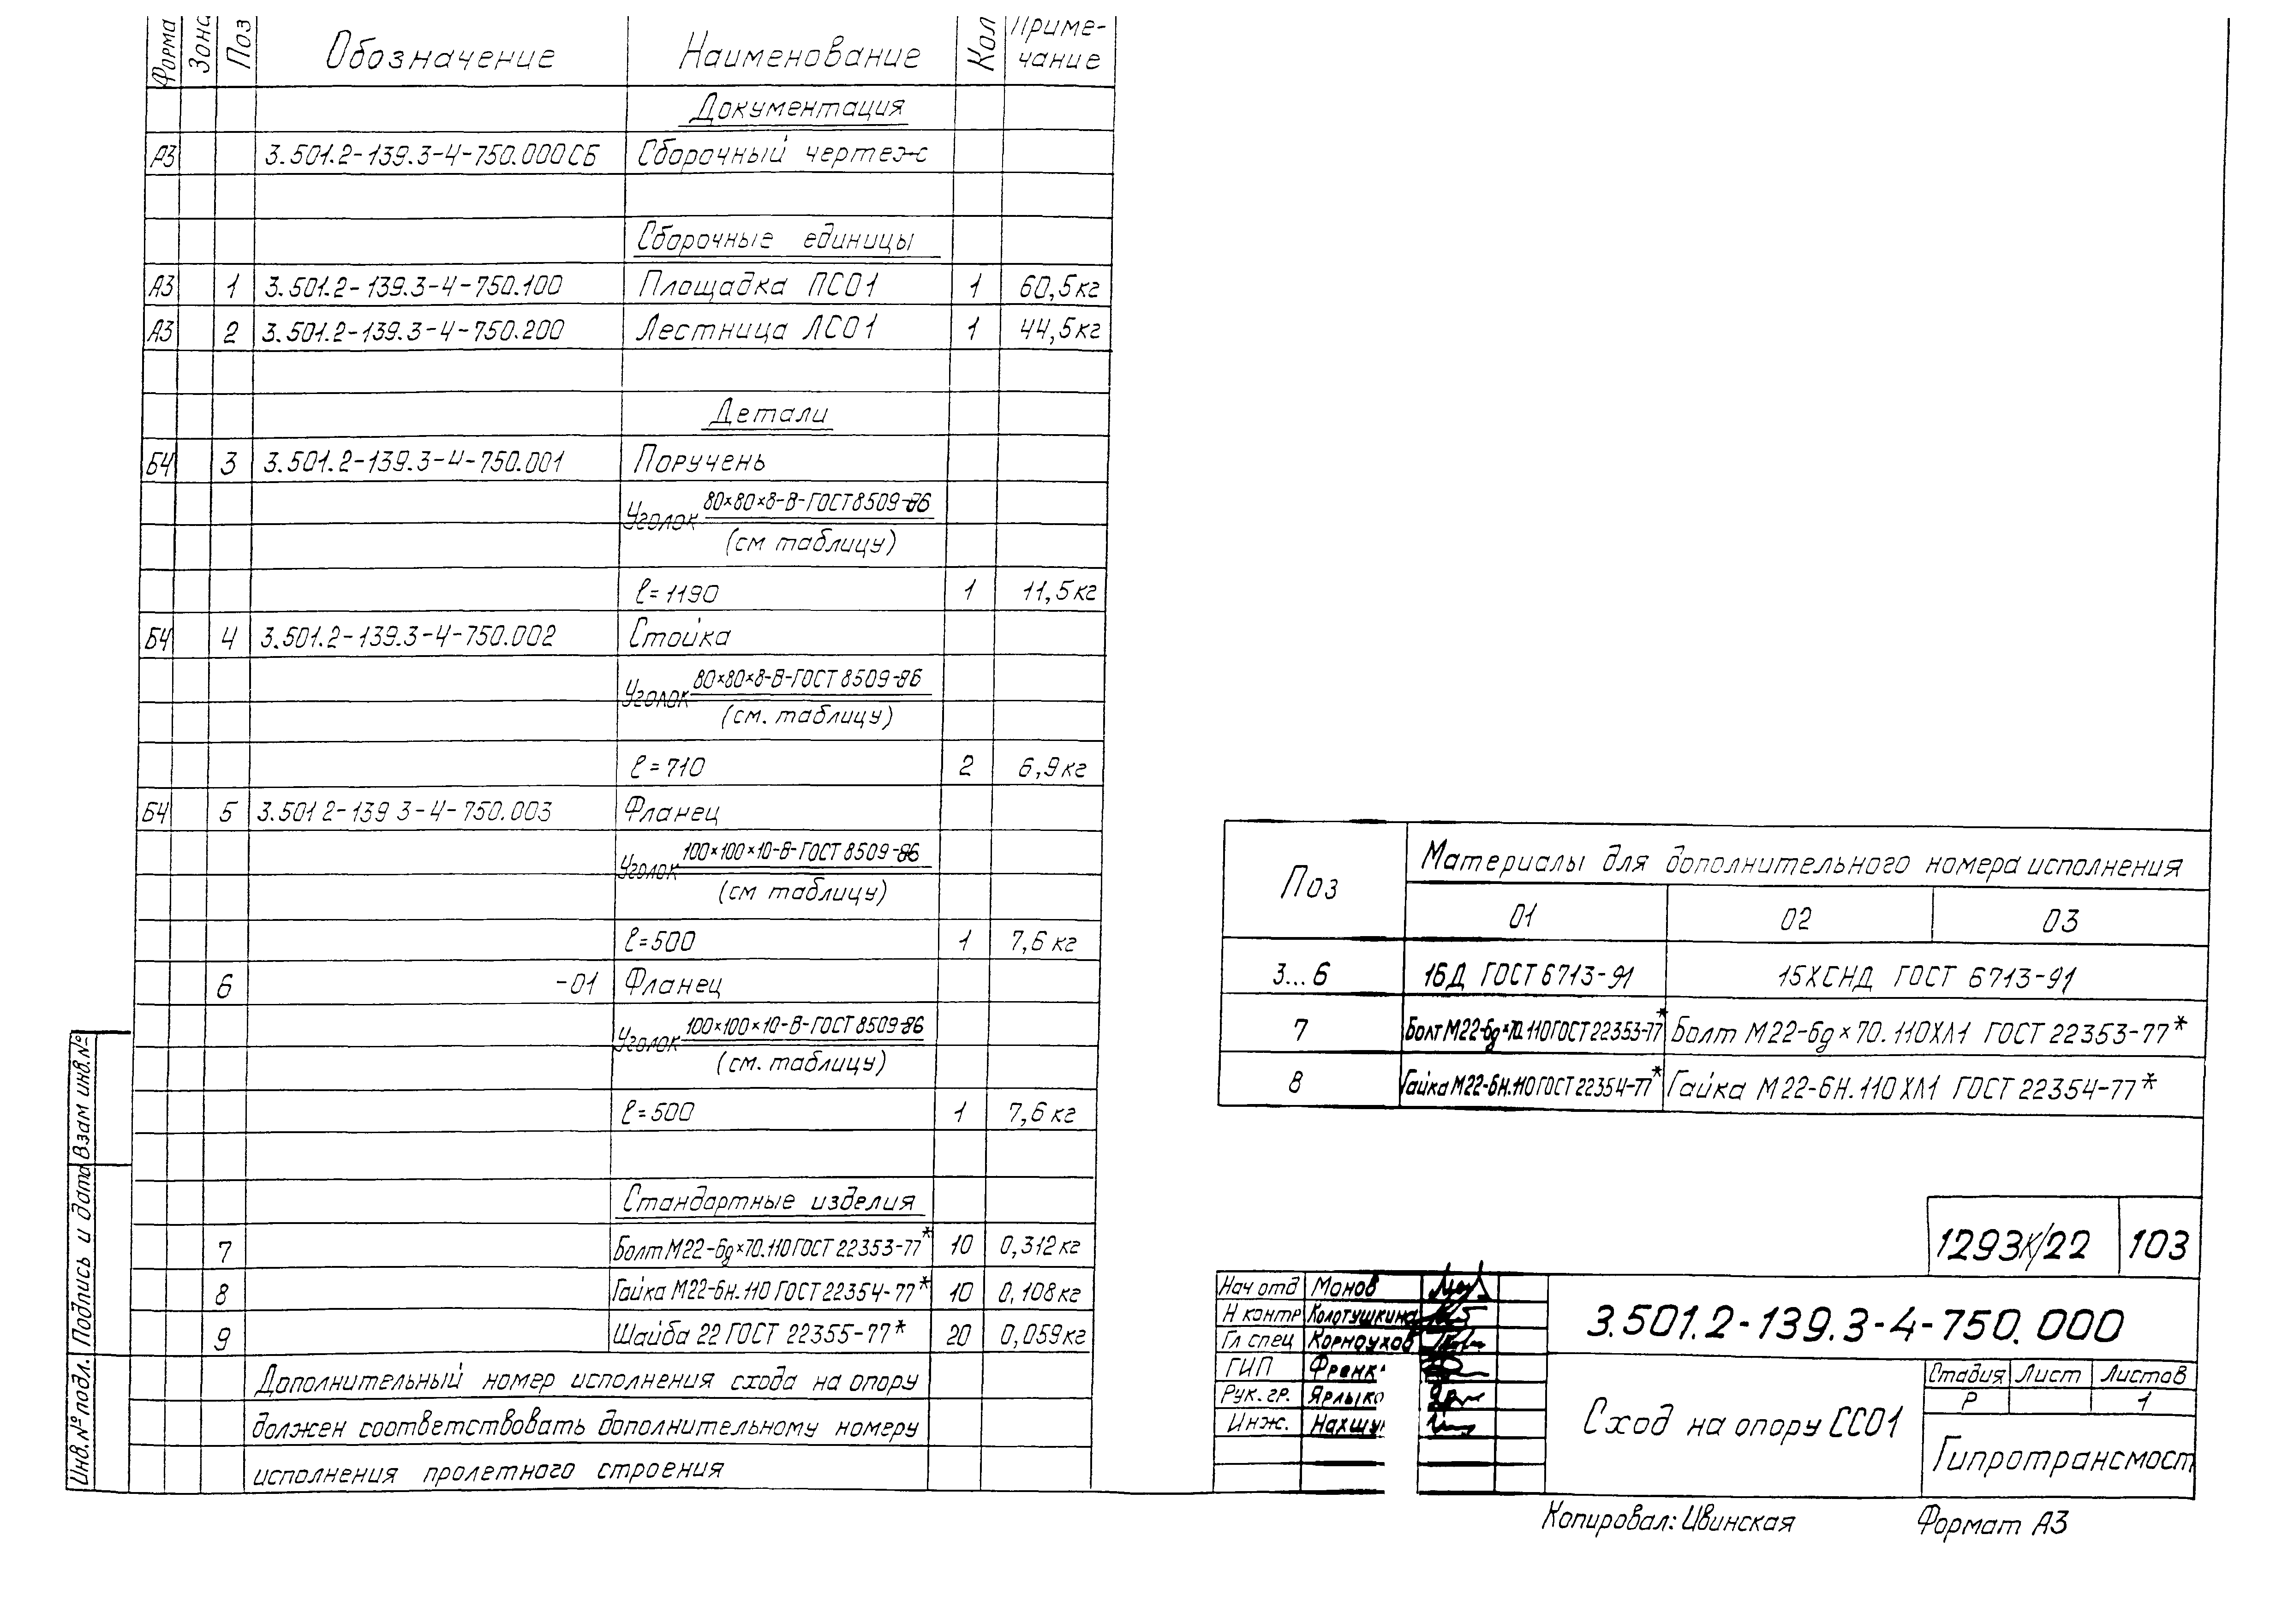 Форма Зона Поз Обозначение Наименование Кол Приме-
чание
Документация
А3 3.501.2-139.3-4-750.000СБ Сборочный чертеж
Сборочные единицы
А3 1 3.501.2-139.3-4-750.100 Площадка ПС01 1 60,5кг
А3 2 3.501.2-139.3-4-750.200 Лестница ЛС01 1 44,5кг
Детали
БЧ 3 3.501.2-139.3-4-750.001 Поручень
80×80×8-В-ГОСТ8509-86
Уголок
(см таблицу)
ℓ=1190 1 11,5кг
БЧ 4 3.501.2-139.3-4-750.002 Стойка
80×80×8-В-ГОСТ 8509-86
Уголок
(см. таблицу)
ℓ=710 2 6,9кг
БЧ 5 3.501 2-139 3-4-750.003 Фланец
100×100×10-В-ГОСТ 8509-86
Уголок
(см таблицу)
ℓ=500 1 7,6 кг
6 -01 Фланец
100×100×10-В-ГОСТ 8509-86
Уголок
(см. таблицу)
ℓ=500 1 7,6 кг
Стандартные изделия
7 Болт М22-6g×70.110 ГОСТ 22353-77* 10 0,312кг
8 Гайка М22-6Н.110 ГОСТ 22354-77* 10 0,108кг
9 Шайба 22 ГОСТ 22355-77* 20 0,059кг
Дополнительный номер исполнения схода на опору
должен соответствовать дополнительному номеру
исполнения пролетного строения
Инв.№ подл. Подпись и дата Взам инв.№
Поз Материалы для дополнительного номера исполнения
01 02 03
3...6 16Д ГОСТ 6713-91 15ХСНД ГОСТ 6713-91
7 Болт М22-6g×70.110 ГОСТ 22353-77* Болт М22-6g×70.110ХЛ1 ГОСТ 22353-77*
8 Гайка М22-6Н.110 ГОСТ 22354-77* Гайка М22-6Н.110 ХЛ1 ГОСТ 22354-77*
1293К/22 103
Нач отд Монов
Н контр Колотушкина
Гл спец Корноухов
ГИП Френк
Рук. гр. Ярлыко
Инж. Нахшун
3.501.2-139.3-4-750.000
Сход на опору СС01
Стадия Лист Листов
Р 1
Гипротрансмост
Копировал: Ивинская Формат А3